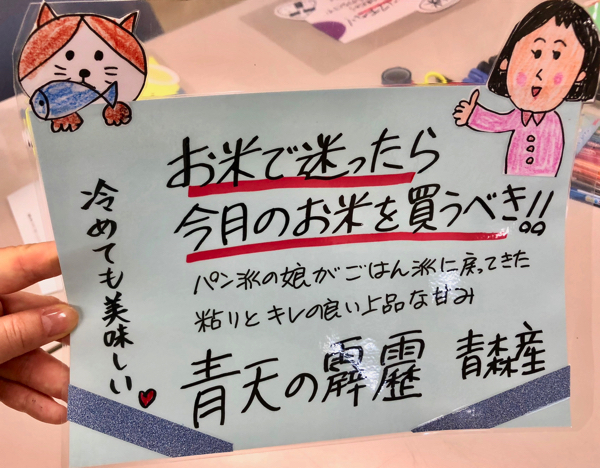 お米で迷ったら
今月のお米を買うべき!!
パン派の娘がごはん派に戻ってきた
粘りとキレの良い上品な甘み
青天の霹靂 青森産
冷めても美味しい